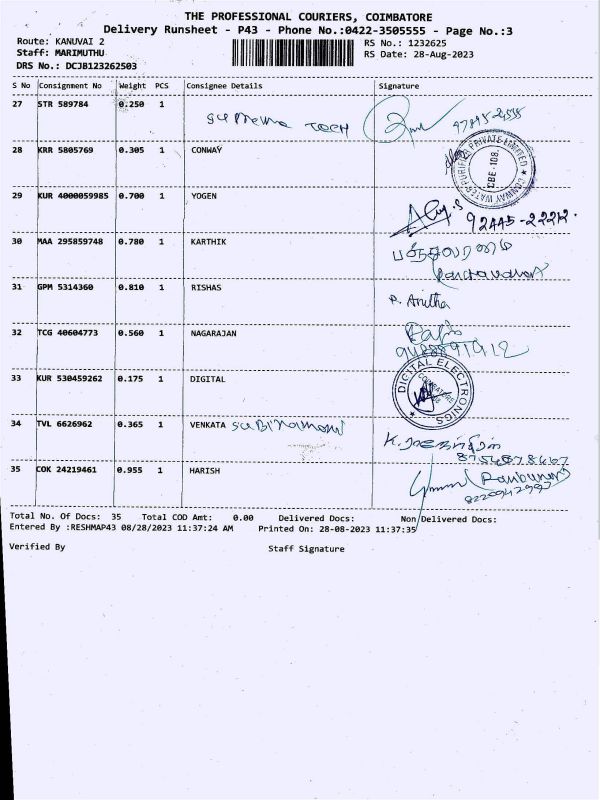 THE PROFESSIONAL COURIERS, COIMBATORE
Delivery Runsheet - P43 - Phone No.:0422-3505555 - Page No.:3
Route: KANUVAI 2
Staff: MARIMUTHU
DRS No.: DCJB123262503
RS No.: 1232625
RS Date: 28-Aug-2023
S No Consignment No Weight PCS Consignee Details Signature
27 STR 589784 0.250 1 TECH
28 KRR 5805769 0.305 1 CONWAY
CONWAY WATER PURIFIER PRIVATE LIMITED
CBE-108.
29 KUR 4000059985 0.700 1 YOGEN
92445-22212.
30 MAA 295859748 0.780 1 KARTHIK
31 GPM 5314360 0.810 1 RISHAS P. Anitha
32 TCG 40604773 0.560 1 NAGARAJAN
33 KUR 530459262 0.175 1 DIGITAL
DIGITAL ELECTRONICS
COIMBATORE
34 TVL 6626962 0.365 1 VENKATA
35 COK 24219461 0.955 1 HARISH
Total No. Of Docs: 35 Total COD Amt: 0.00 Delivered Docs: Non Delivered Docs:
Entered By :RESHMAP43 08/28/2023 11:37:24 AM Printed On: 28-08-2023 11:37:35
Verified By Staff Signature